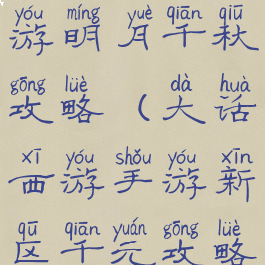 yóu míng yuè qiān qiū
游明月千秋
gōng lüè dà huà
攻略(大话
xī yóu shǒu yóu xīn
西游手游新
qū qiān yuán gōng lüè
区千元攻略